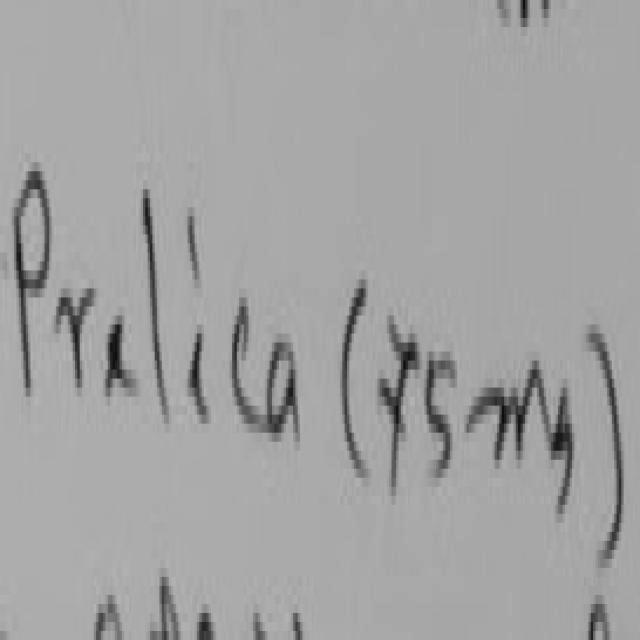 Pralica (75mg)